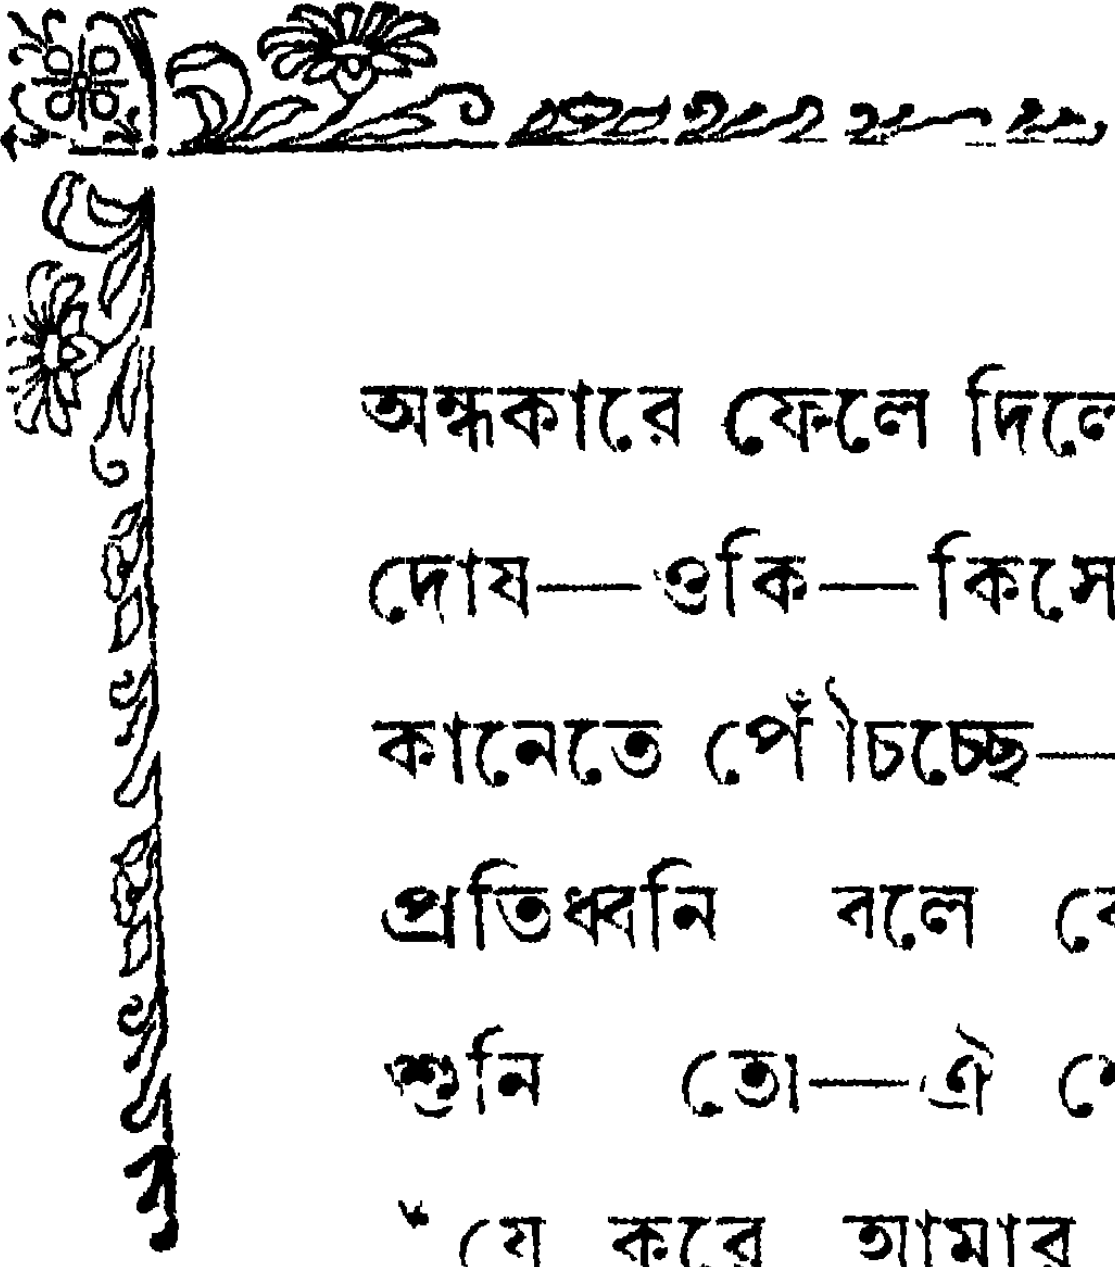 অন্ধকারে ফেলে দিলে
দোষ—ওকি—কিসে
কানেতে পৌঁচচ্ছে—
প্রতিধ্বনি বলে
শুনি তো—ঐ
“যে করে আমার